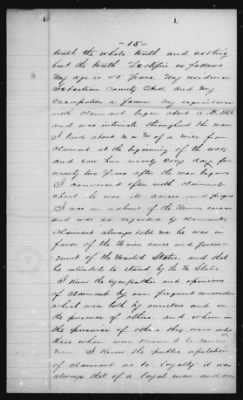 - 15 -
truth the whole truth and nothing
but the truth Testifies as follows
My age is 45 years. My residence
Sebastian County Ark. and my
occupation a farmer. My acquaintance
with claimant began about A.D. 1860
and was intimate throughout the war
I lived about of a mile from
claimant at the beginning of the war,
and saw him nearly every day for
nearly two years after the war began
I conversed often with claimant
about the war its causes and progress
I was an adherent of the Union cause
and was so regarded by claimant.
Claimant always told me he was in
favor of the Union cause and govern-
ment of the United States, and that
he intended to stand by the U. States.
I knew the sympathies and opinions
of claimant by our frequent conversations
which was both by ourselves and in
the presence of others. and when in
the presence of others they were only
those whom were known to be Union
men. I knew the public reputation
of claimant as to loyalty. it was
always that of a loyal man and